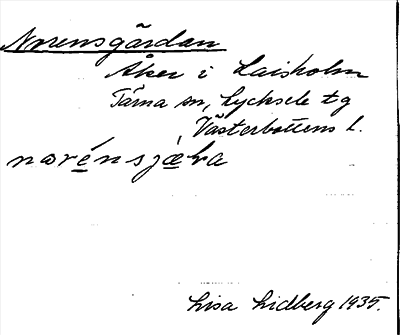 Norensgärdan
Åker i Laisholm
Tärna sn, Lycksele tg
Västerbottens l.
norénsjæ̀ḷa
Lisa Lidberg 1935.